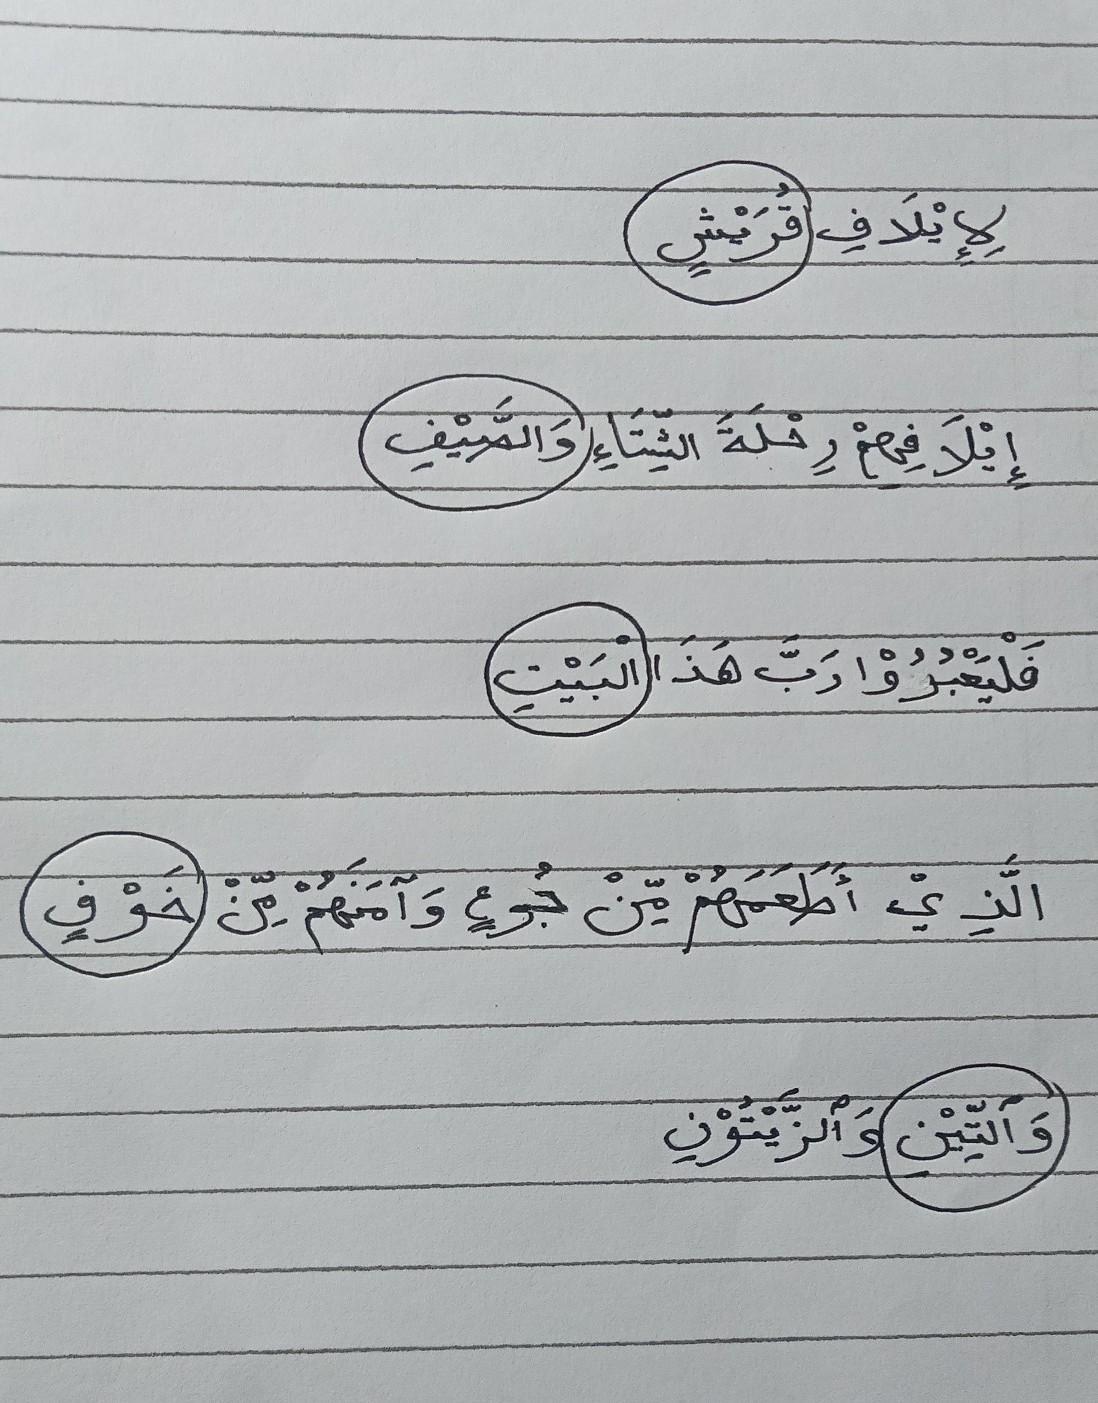 لِإِيْلَافِ قُرَيْشٍ
إِيْلَافِهِمْ رِحْلَةَ الشِّتَاءِ وَالصَّيْفِ
فَلْيَعْبُدُوْا رَبَّ هَذَا الْبَيْتِ
الَّذِيْ أَطَعَمَهُمْ مِّنْ جُوعٍ وَآمَنَهُمْ مِّنْ خَوْفٍ
وَٱلتِّيْنِ وَٱلزَّيْتُوْنِ